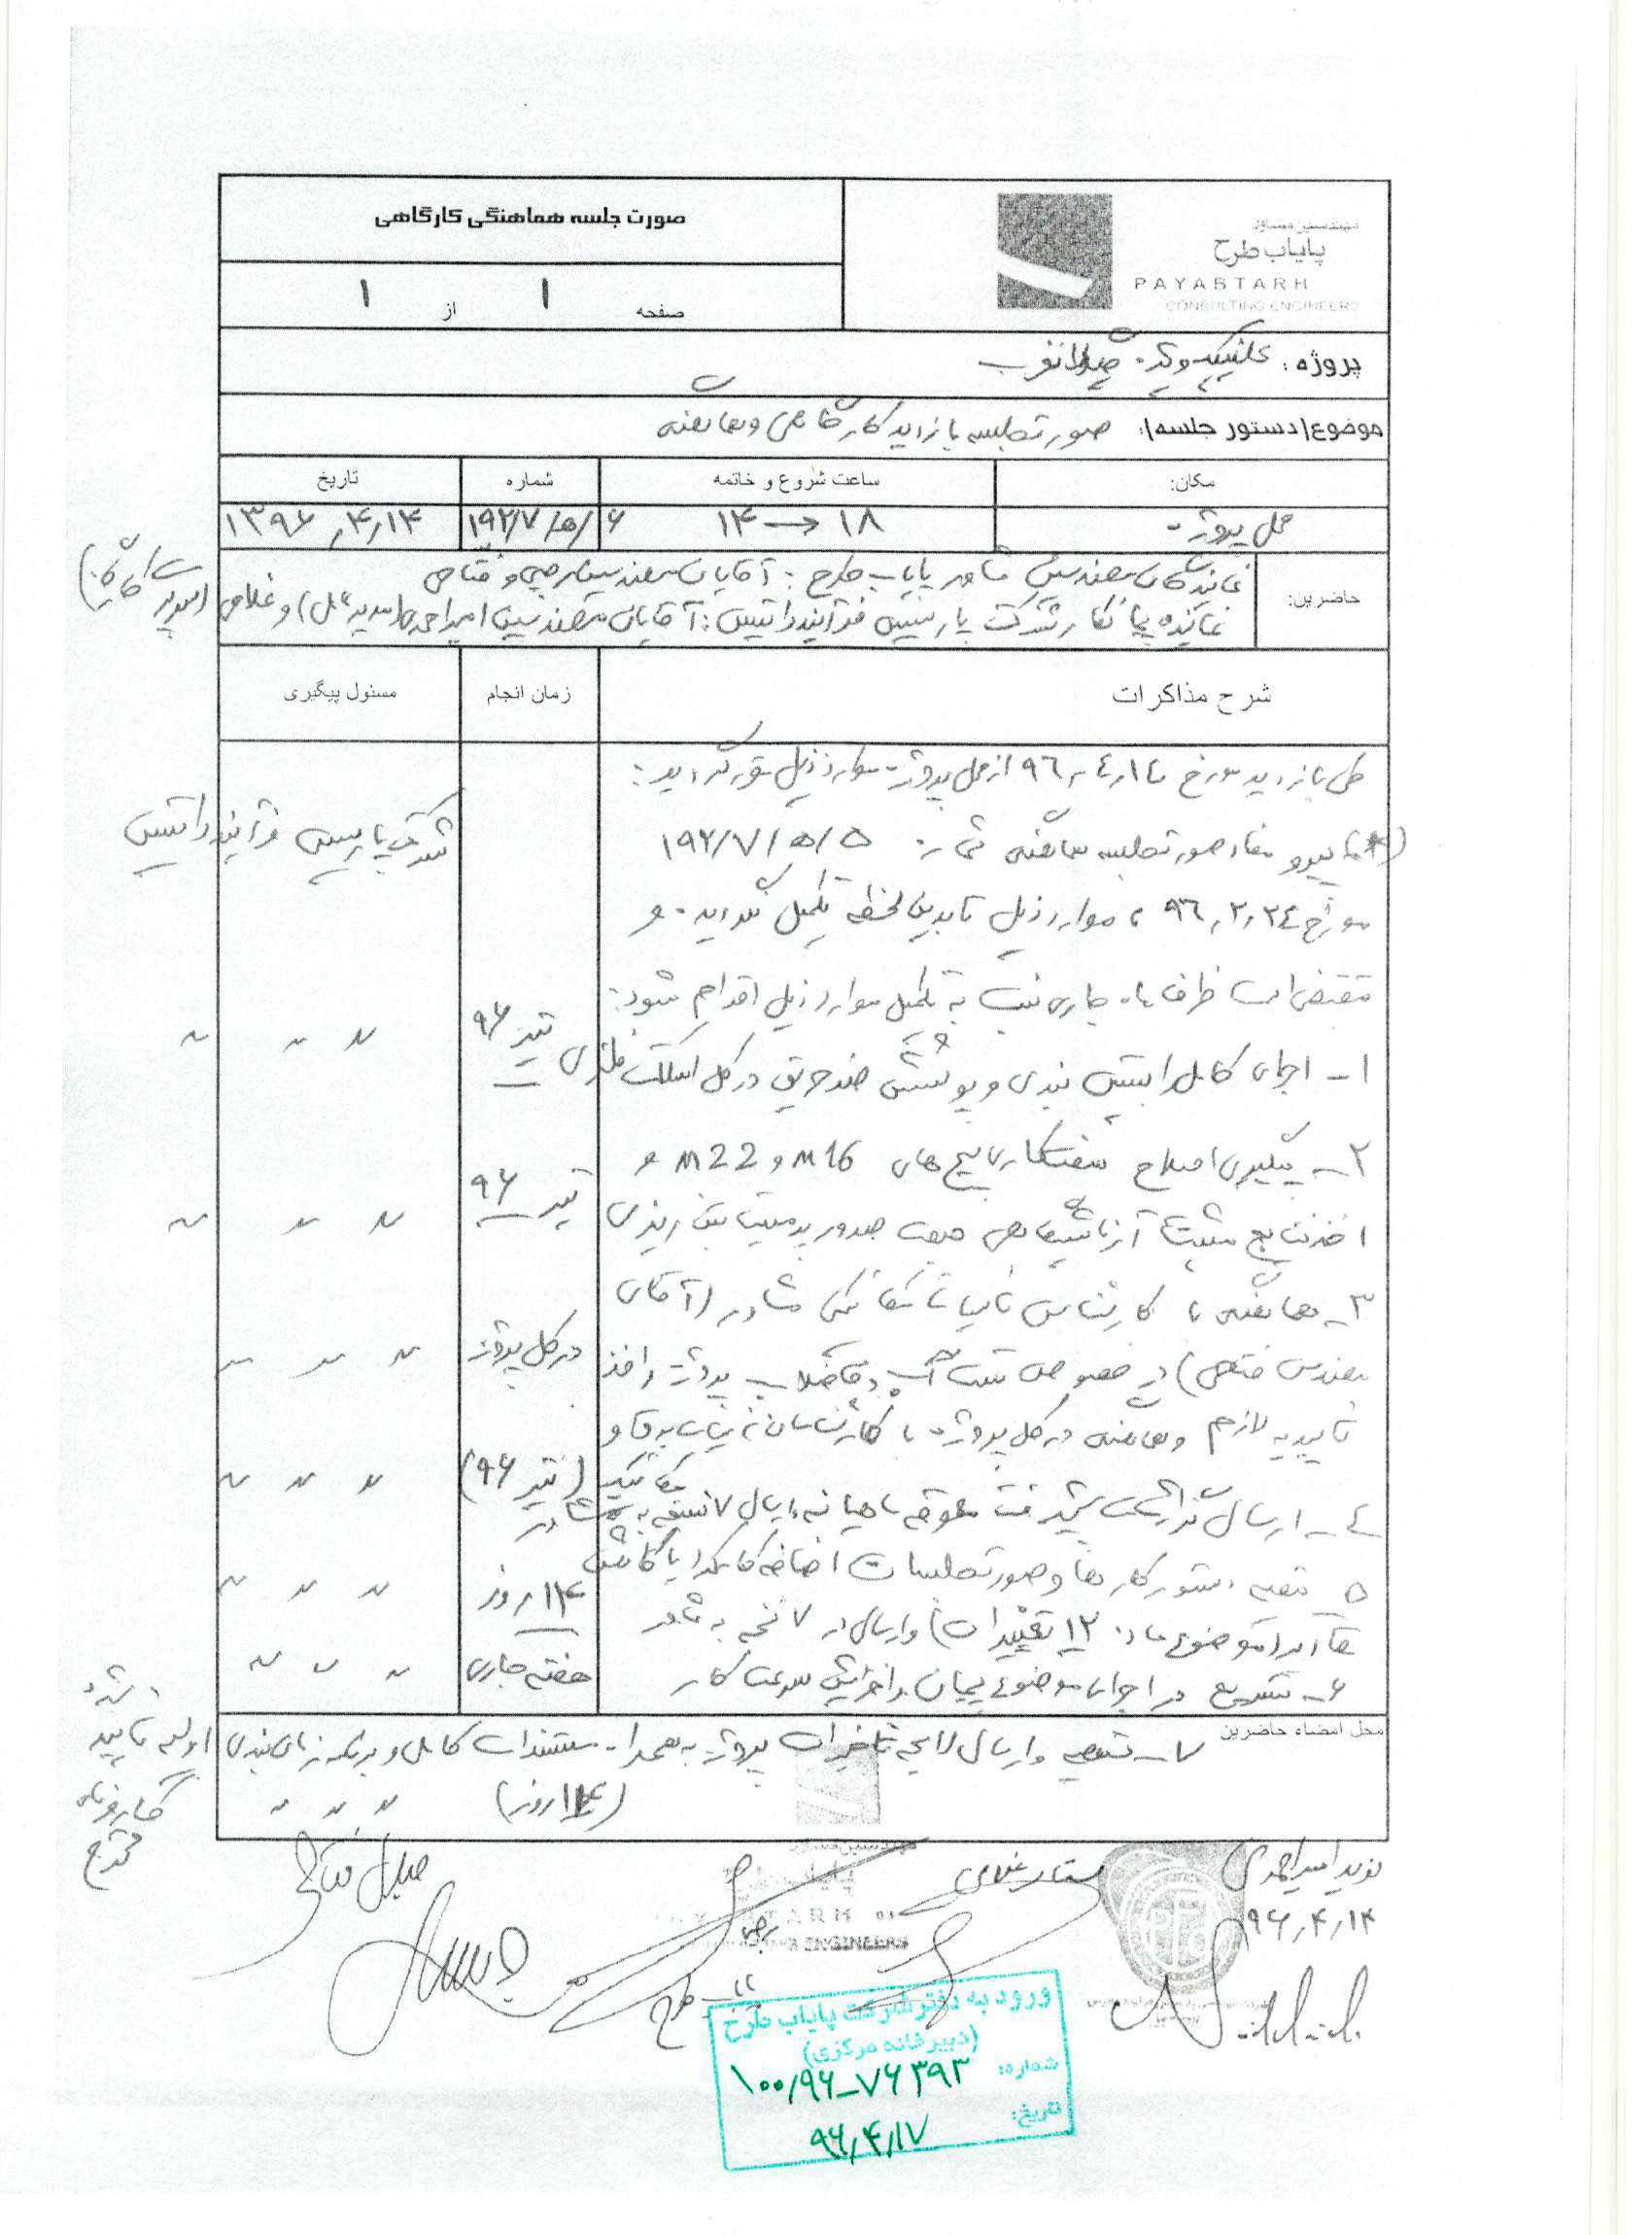 صورت جلسه هماهنگی کارگاهی
صفحه ۱ از ۱
مهندسین مشاور
پایاب طرح
PAYABTARH
CONSULTING ENGINEERS
پروژه: کلینیک ویژه
موضوع/دستور جلسه/: صورتجلسه بازدید کارگاهی و معاینه
مکان: ساعت شروع و خاتمه شماره تاریخ
محل پروژه ۱۸ → ۱۴ ۱۹۲/۷/ه/۶ ۱۳۹۶,۴,۱۴
حاضرین: نمایندگان مهندسین مشاور پایاب طرح: آقایان مهندسین رجبی و فتاحی
نماینده پیمانکار شرکت پارسیس فرآیند راتیس: آقایان مهندسین امیراحمدی (مدیر عامل) و غلامی (سرپرست کارگاه)
شرح مذاکرات زمان انجام مسئول پیگیری
طی بازدید مورخ ۹۶,۴,۱۴ از محل پروژه موارد ذیل مقرر گردید:
پیرو مفاد صورتجلسه معاینه شماره ۱۹۲/۷/ه/۵ شرکت پارسیس فرآیند راتیس
مورخ ۹۶,۲,۲۴، موارد ذیل تا بدین لحظه تکمیل نگردیده و
مقتضی است ظرف ماه جاری نسبت به تکمیل موارد ذیل اقدام شود:
۱- اجرای کامل وال پست بندی و پوشش ضد حریق در کل اسکلت فلزی تیر ۹۶ " " "
۲- پیگیری اصلاح سفتکاری پیچ های M16 و M22 و
اخذ نتایج مثبت آزمایشگاهی جهت صدور پرمیت بتن ریزی تیر ۹۶ " " "
۳- معاینه با کارشناس تاسیسات مکانیکی مشاور (آقای
مهندس فتاحی) در خصوص تست آب و فاضلاب پروژه و اخذ در کل پروژه " " "
تاییدیه لازم و معاینه در کل پروژه با کارشناسان تاسیسات برق و
مکانیک (تیر ۹۶) " " "
۴- ارسال گزارش پیشرفت معوقه ماهیانه و ارسال ۷ نسخه به مشاور
۵- تهیه دستور کارها و صورتجلسات اضافه کاری یا کاهش ۱۴ روز " " "
مقادیر (موضوع ماده ۱۲ تغییرات) و ارسال در ۷ نسخه به مشاور
۶- تسریع در اجرای موضوع پیمان و افزایش سرعت کار هفته جاری " " "
محل امضاء حاضرین
۷- تهیه و ارسال لایحه تاخیرات پروژه به همراه مستندات کامل و برنامه زمان بندی اولیه تایید شده
کارفرمای محترم
(۱۴ روز) " " "
نوید امیراحمدی
۹۶,۴,۱۴
غلامی
رجبی
پایاب طرح
جلیل فتاحی
PAYABTARH
CONSULTING ENGINEERS
ورود به دفتر شرکت پایاب طرح
(دبیرخانه مرکزی)
شماره: ۱۰۰/۹۶-۷۶۳۹۳
تاریخ: ۹۶,۴,۱۷